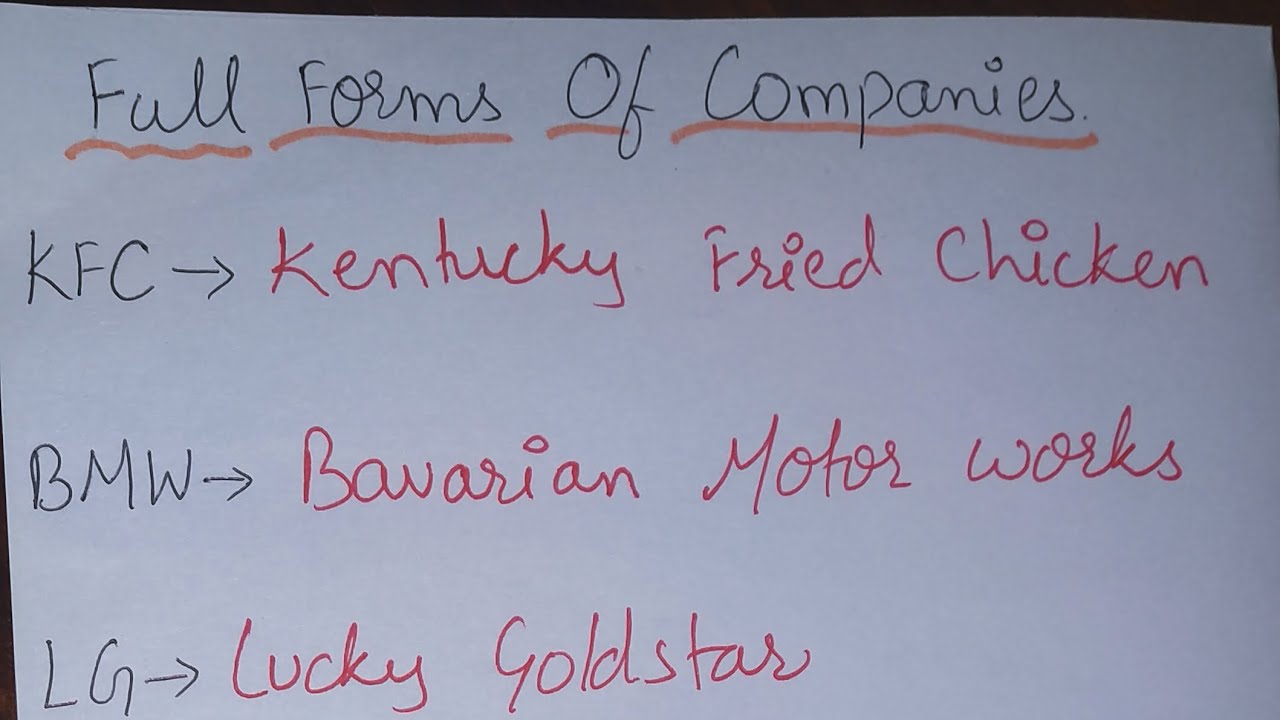 Full Forms Of Companies.
KFC → Kentucky Fried Chicken
BMW → Bavarian Motor works
LG → Lucky Goldstar